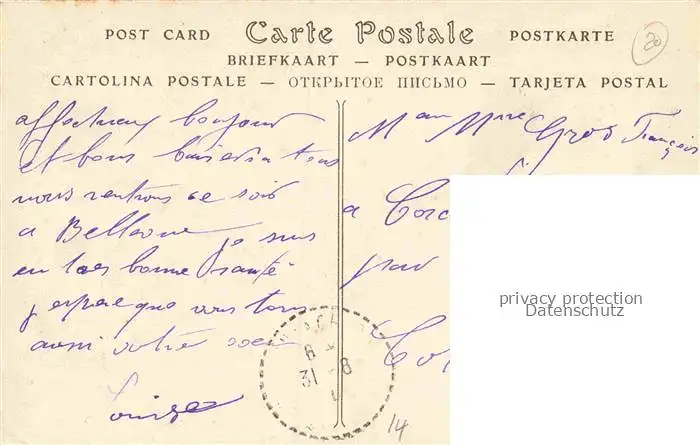 POST CARD Carte Postale POSTKARTE
BRIEFKAART — POSTKAART
CARTOLINA POSTALE — ОТКРЫТОЕ ПИСЬМО — TARJETA POSTAL
20
affectueux bonjour
et bons baisers a tous
nous rentrons ce soir
a Bellevue je suis
en tres bonne santé
j espere que vous tous
aussi votre
Louise
M Mme Gros François
a
par
privacy protection
Datenschutz
8
31 8
14